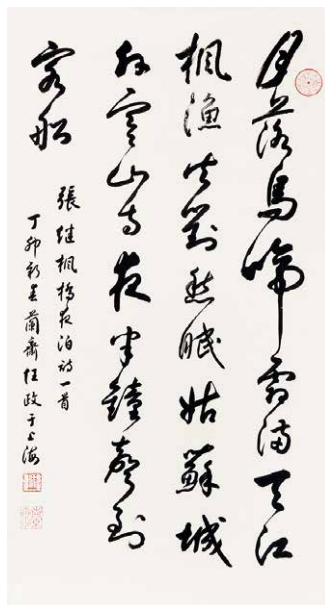 月落烏啼霜滿天江
楓漁火對愁眠姑蘇城
外寒山寺夜半鐘聲到
客船
張继楓橋夜泊詩一首
丁卯新春蘭齋任政于上海